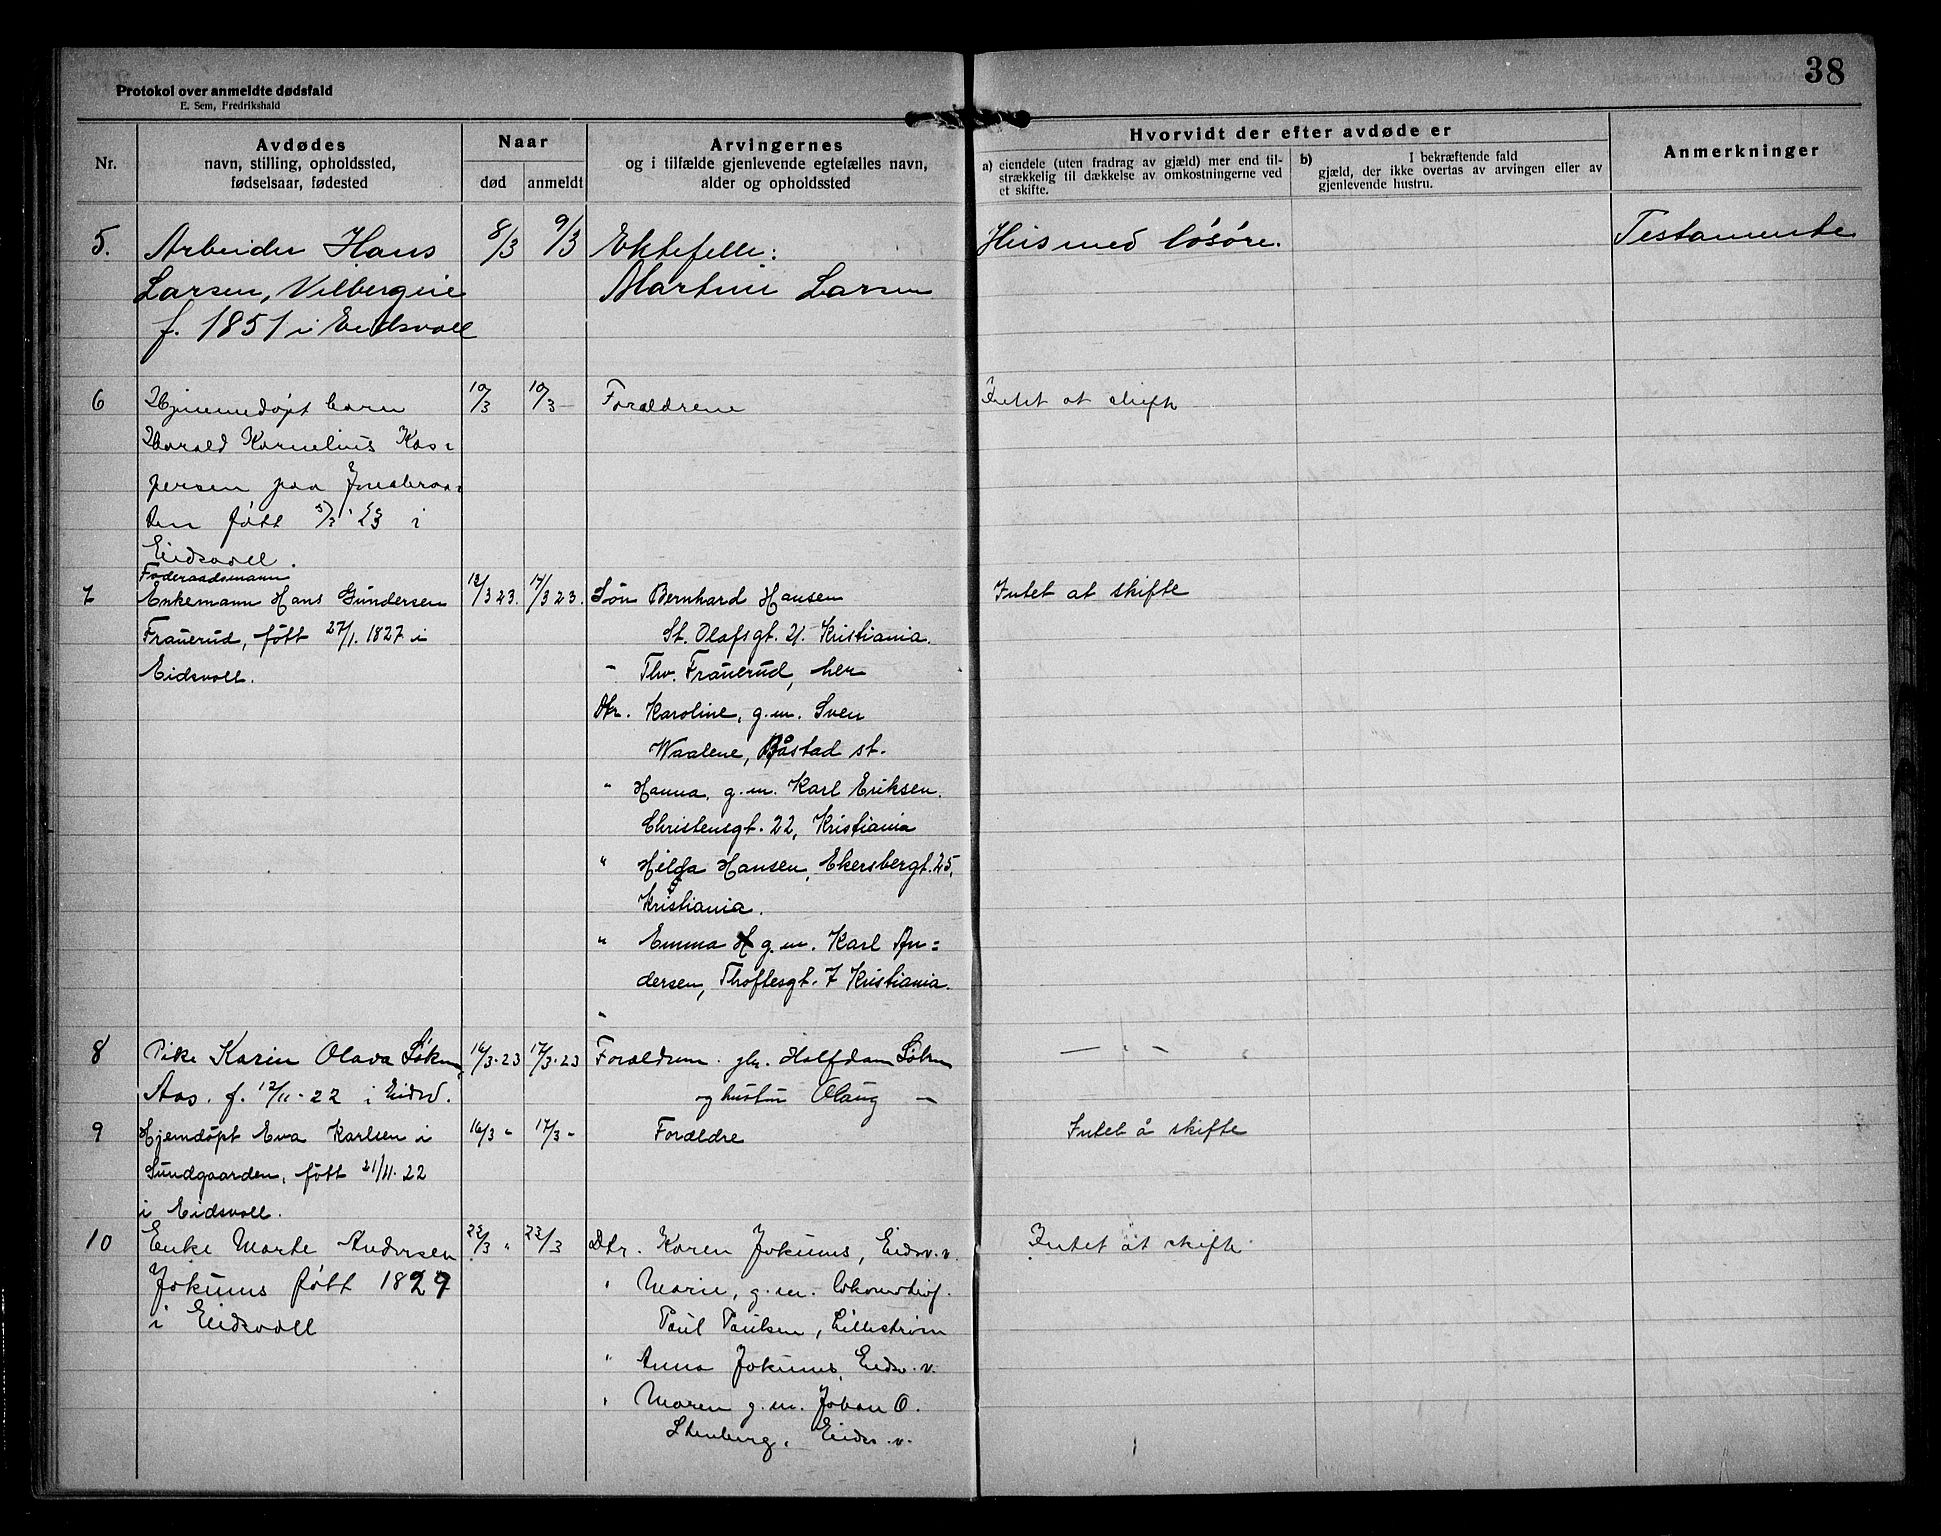 38
Protokol over anmeldte dødsfald
E. Sem, Fredrikshald
Nr.
Avdødes
navn, stilling, opholdssted,
fødselsaar, fødested
Naar
død
anmeldt
Arvingernes
og i tilfælde gjenlevende egtefælles navn,
alder og opholdssted
Hvorvidt der efter avdøde er
a) eiendele (uten fradrag av gjæld) mer end til-
strækkelig til dækkelse av omkostningerne ved
et skifte.
b) I bekræftende fald
gjæld, der ikke overtas av arvingen eller av
gjenlevende hustru.
Anmerkninger
5. Arbeider Hans 8/3 9/3 Ektefelle: Hus med løsøre. Testamente
Larsen, Vilbergeie Martini Larsen
f. 1851 i Eidsvoll
6 Hjemmedøpt barn 10/3 10/3 Forældrene Intet at skifte
Harald Kornelius Kas-
persen paa
født 5/3 23 i
Eidsvoll.
Føderaadsmann
7 Enkemann Hans Gundersen 12/3 23. 14/3 23. Søn Bernhard Hansen Intet at skifte
Frauerud, født 27/1. 1827 i St. Olafsgt. 21. Kristiania.
Eidsvoll. - Thv. Frauerud, her
Dtr. Karoline, g.m. Sven
Waalene, Båstad st.
" Hanna, g.m. Karl Eriksen.
Christensgt. 22, Kristiania
" Hilda Hansen, Ekersbergt. 25,
Kristiania.
" Emma g.m. Karl An=
dersen, Thoftesgt. 7 Kristiania.
"
8 Pike Karin Olava 16/3-23 17/3-23 Halfdan — " —
Aas. f. 12/11-22 i Eidsv. og hustru Olaug —
9 Hjemdøpt Eva Karlsen i 16/3 " 17/3 - Forældre Intet å skifte
Sundgaarden, født 21/11-22
i Eidsvoll.
10 Enke Marte Andersen 22/3 " 23/3 Dtr. Karen Jokums, Eidsv. v. Intet at skifte
Jokums født 1829 " Marie, g.m. lokomotivf.
i Eidsvoll Paul Paulsen, Lillestrøm
" Anna Jokums, Eidsv. v.
" Maren g.m. Johan O.
Stenberg, Eidsv. v.